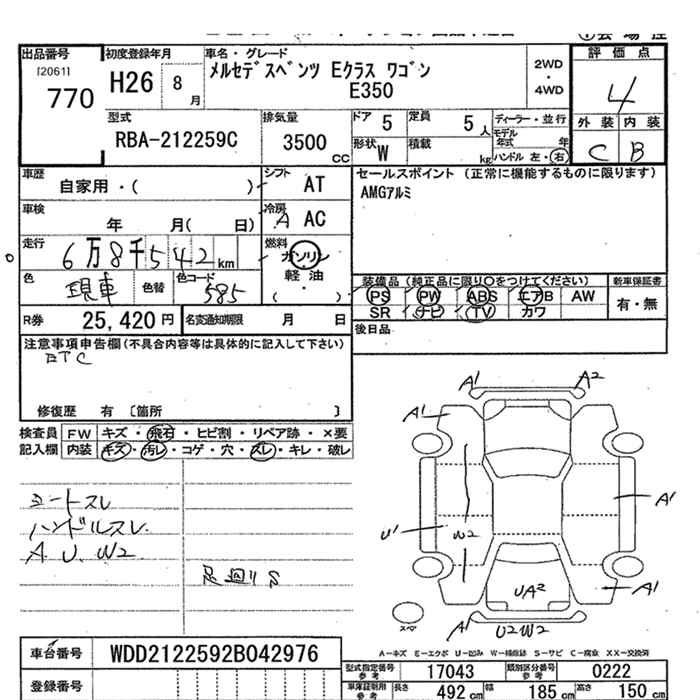 出品番号
120611
770
初度登録年月
H26 8月
車名・グレード
メルセデスベンツ Eクラス ワゴン
E350
2WD
・
4WD
評価点
4
外装 内装
C B
型式
RBA-212259C
排気量
3500 cc
ドア 5
定員 5人
形状 W
積載 kg
ディーラー・並行
モデル年式 年
ハンドル 左・右
車歴
自家用・( )
シフト
AT
セールスポイント (正常に機能するものに限ります)
AMGアルミ
車検
年 月( 日)
冷房
A AC
走行
6万8千542km
燃料
ガソリン
軽・油
( )
色
現車
色替
色コード
585
装備品 (純正品に限り○をつけてください)
PS PW ABS エアB AW
SR ナビ TV カワ
新車保証書
有・無
R券 25,420円
名変通知期限 月 日
後日品
注意事項申告欄(不具合内容等は具体的に記入して下さい)
ETC
修復歴 有 〔箇所 〕
検査員 FW キズ・飛石・ヒビ割・リペア跡・×要
記入欄 内装 キズ・汚レ・コゲ・穴・スレ・キレ・破レ
シートスレ
ハンドルスレ
A U W2
足廻りS
A1 A2
A1
A1
U1 W2
UA2 A1
スペア
A1 U2W2
A-キズ E-エクボ U-凹み W-補修跡 S-サビ C-腐食 XX-交換済
車台番号 WDD2122592B042976
登録番号
型式指定番号 参考 17043
類別区分番号 参考 0222
車庫証明用 参考 長さ 492cm 幅 185cm 高さ 150cm